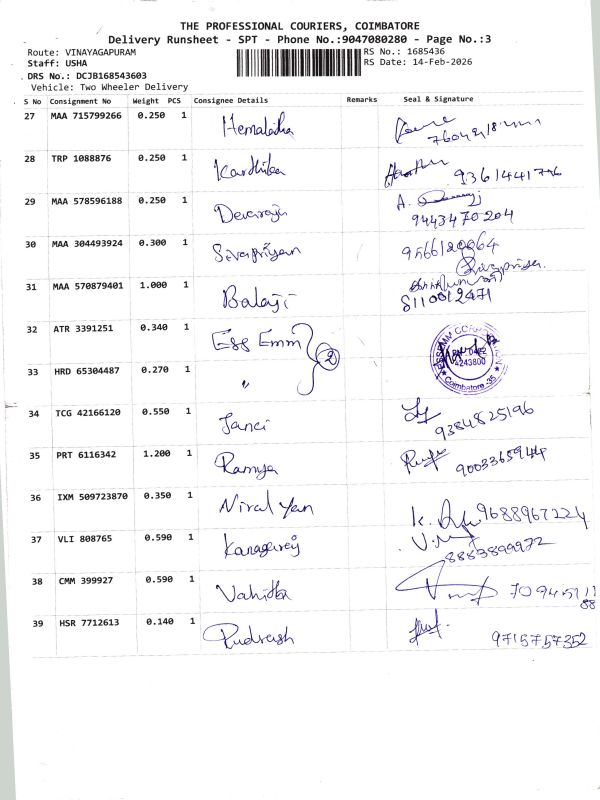 THE PROFESSIONAL COURIERS, COIMBATORE
Delivery Runsheet - SPT - Phone No.:9047080280 - Page No.:3
Route: VINAYAGAPURAM RS No.: 1685436
Staff: USHA RS Date: 14-Feb-2026
DRS No.: DCJB168543603
Vehicle: Two Wheeler Delivery
S No Consignment No Weight PCS Consignee Details Remarks Seal & Signature
27 MAA 715799266 0.250 1 Hemalatha
28 TRP 1088876 0.250 1 Karthika 9361441776
29 MAA 578596188 0.250 1 Devaraj A.
9443470204
30 MAA 304493924 0.300 1 Sivapriyan 9566120064
Sivapriya.
31 MAA 570879401 1.000 1 Balaji
8110012471
32 ATR 3391251 0.340 1 Ess Emm 2
33 HRD 65304487 0.270 1 "
Coimbatore -35
34 TCG 42166120 0.550 1 Janci
9384825196
35 PRT 6116342 1.200 1 Ramya
9003365944
36 IXM 509723870 0.350 1 Niral yan
K. 9688967224
37 VLI 808765 0.590 1 Kanagaraj
8883899972
38 CMM 399927 0.590 1 Vahitha
39 HSR 7712613 0.140 1 Rudresh
9715757352